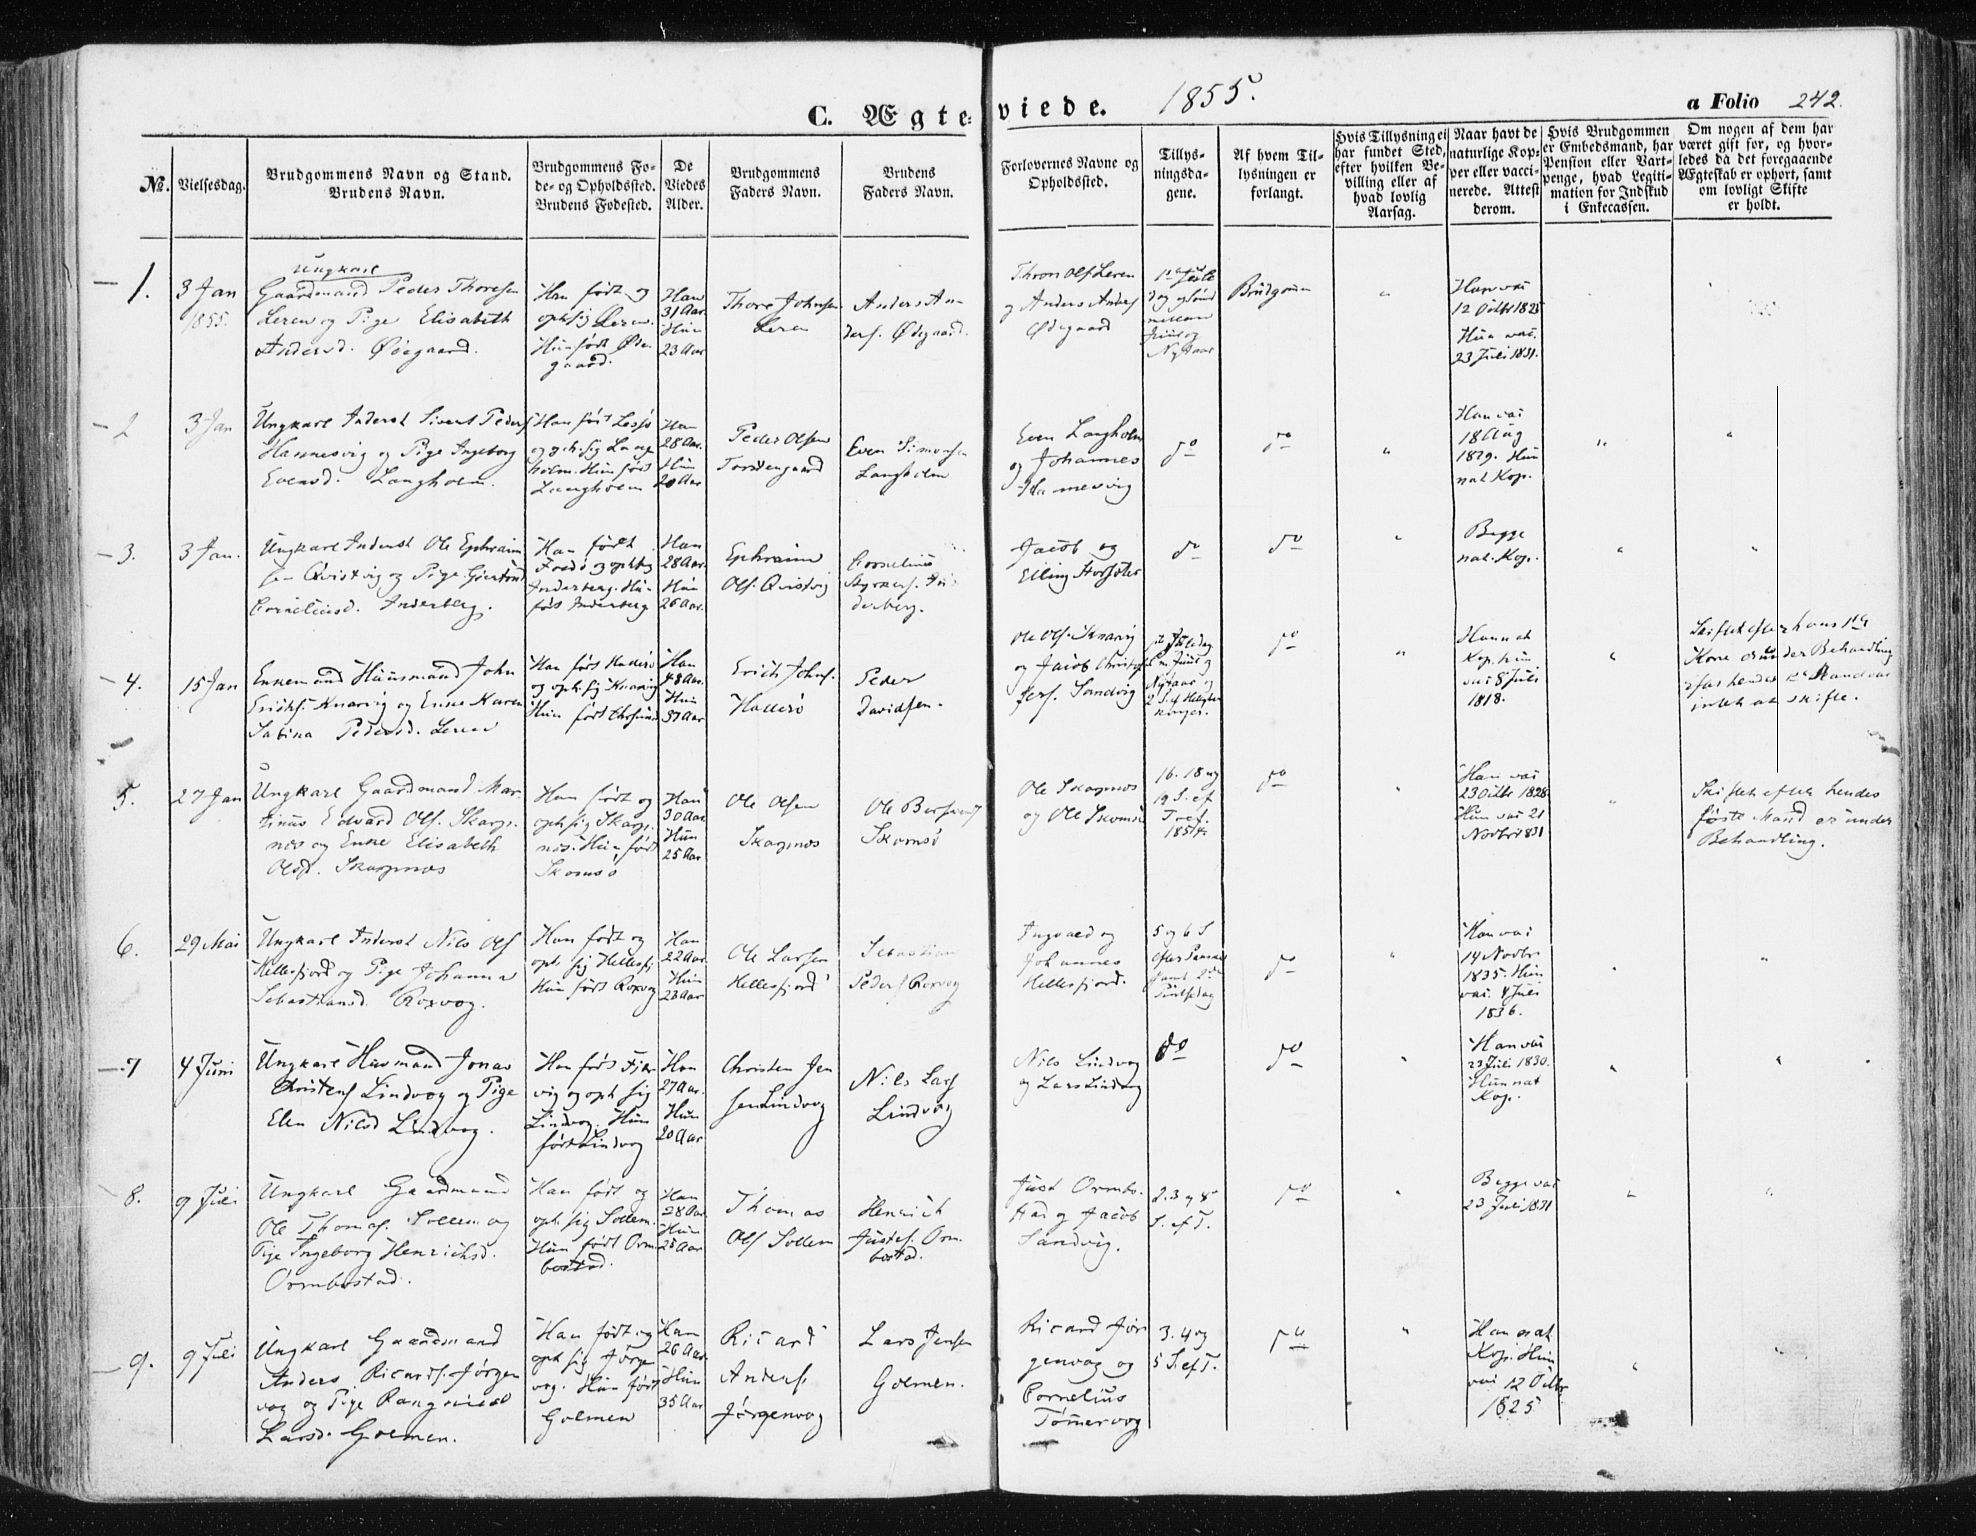 C. Ægteviede. 1855. a Folio 242.
No.
Vielsesdag.
Brudgommens Navn og Stand.
Brudens Navn.
Brudgommens Fo-
de- og Opholdssted.
Brudens Fødested.
De
Viedes
Alder.
Brudgommens
Faders Navn.
Brudens
Faders Navn.
Forlovernes Navne og
Opholdssted.
Tillys-
ningsda-
gene.
Af hvem Til-
lysningen er
forlangt.
Hvis Tillysning ei
har fundet Sted,
efter hvilken Be-
villing eller af
hvad lovlig
Aarsag.
Naar havt de
naturlige Kop-
per eller vacci-
nerede. Attest
derom.
Hvis Brudgommen
er Embedsmand, har
Pension eller Vart-
penge, hvad Legiti-
mation for Indskud
i Enkecassen.
Om nogen af dem har
været gift for, og hvor-
ledes da det foregaaende
Ægteskab er ophørt, samt
om lovligt Skifte
er holdt.
1.
3 Jan
1855.
Ungkarl
Gaardmand Peder Thoresen
Leren og Pige Elisabeth
Andersd. Ødegaard.
Han født og
oph. sig Leren.
Hun født Øde
gaard.
Han
31 Aar
Hun
23 Aar
Thore Johnsen
Leren
Anders An-
ders. Ødegaard.
Thron Ols Leren
og Anders Anders
Ødegaard
1ste Jule
dag og Sønd
mellem
Juul og
Nytaar
Brudgom
"
Han vac
12 Octbr 1825
Hun vac.
23 Juli 1831.
2
3 Jan
Ungkarl Inderst Sivert Peders
Hannesvig og Pige Ingeborg
Evensd. Langholm.
Han født
og oph. sig Lang
holm. Hun født
Langholm
Han
28 Aar.
Hun
20 Aar
Peder Olsen
Even Simonsen
Langholm
Even Langholm
og Johannes
do
do
"
Han vac
18 Aug
1829. Hun
nat. Kop.
"
"
3.
3 Jan.
Ungkarl Inderst Ole Ephraim
sen Qvistvig og Pige Giertrud
Corneliusd. Inderberg.
Han født
og oph sig
Inderberg. Hun
født Inderberg
Han
28 Aar.
Hun
26 Aar.
Ephraim
Ols. Qvistvig
Cornelius
In
derberg.
Jacob og
Elling
do
do
"
Begge
nat. Kop.
"
"
4.
15 Jan
Enkemand Huusmand John
Erichs. Knarvig og Enke Karen
Sabina Pedersd. Leren
Han født
og oph. sig Knarvig
Hun født
Han
48 Aar.
Hun
37 Aar
Erich Johns.
Peder
Davidsen.
Ole Ols. Knarvig
og Jacob Christof
fers. Sandvig
Juledag
Juul og
Nytaar og
2 S. ef Hellig 3
Konger.
do
"
Han nat
Kop. Hun
vac 8 Juli
1818.
"
Skiftet efter hans 1ste
Kone er under Behandling
efter hendes 1ste Mand var
intet at skifte.
5.
27 Jan
Ungkarl Gaardmand Mar-
tinus Edvard Ols. Skarps-
nes og Enke Elisabeth
Olsd. Skarpnæs
Han født og
oph. sig Skarps
nes. Hun født
Skomsø
Han
30 Aar
Hun
25 Aar
Ole Olsen
Skarpnæs
Ole
Skomsø
Ole Skarpnæs
og Ole Skomsø
16. 18 og
19 S. ef
Tref.
1854.
do
"
Han vac
23 Octbr 1828
Hun vac 21
Novbr 1831
"
Skiftet efter hendes
første Mand er under
Behandling.
6.
29 Mai
Ungkarl Inderst Nils Ols
Hellesfjord og Pige Johanna
Sebastiansd. Roxvog.
Han født og
oph. sig Hellesfj
Hun født Roxvog
Han
22 Aar
Hun
23 Aar
Ole Larsen
Hellesfjord
Sebastian
Peders Roxvog
Ingvald og
Johannes
Hellesfjord.
5 og 6 S
efter Paaske
samt 2den
Pintsedag
do
"
Han vac
14 Novbr
1835. Hun
vac. 4 Juli
1836.
"
"
7
4 Juni
Ungkarl Huusmand Jonas
Christens Lindvog og Pige
Elen Nilsd Lindvog.
Han født
vig og oph sig
Lindvog. Hun
født Lindvog
Han
27 Aar.
Hun
20 Aar
Christen Jen
sen Lindvog
Nils Lars
Lindvog
Nils Lindvog
og Lars Lindvog
do
do
"
Han vac
23 Juli 1830.
Hun nat
Kop.
"
"
8.
9 Juli
Ungkarl Gaardmand
Ole Thomas. Sollem og
Pige Ingeborg Henrichsd.
Ormbostad.
Han født og
oph. sig Sollem.
Hun født Orm
bostad.
Han
28 Aar
Hun
25 Aar
Thomas
Ols Sollem
Henrich
Justs. Orm
bostad.
Just Ormbo-
stad og Jacob
Sandvig.
2. 3 og 8
S. ef T.
do
"
Begge vac
23 Juli 1831
"
"
9.
9 Juli
Ungkarl Gaardmand
Anders Ricards. Jørgen
vog og Pige
Larsd. Golmen.
Han født og
oph sig Jørgen
vog. Hun født
Golmen
Han
26 Aar
Hun
35 Aar
Ricard
Anders.
Jørgenvog
Lars Jensen
Golmen.
Ricard Jør
genvog og
Cornelius
Tømmervog
3. 4 og
5 S. ef T.
do
"
Han nat
Kop. Hun
vac 12 Octbr
1825
"
"